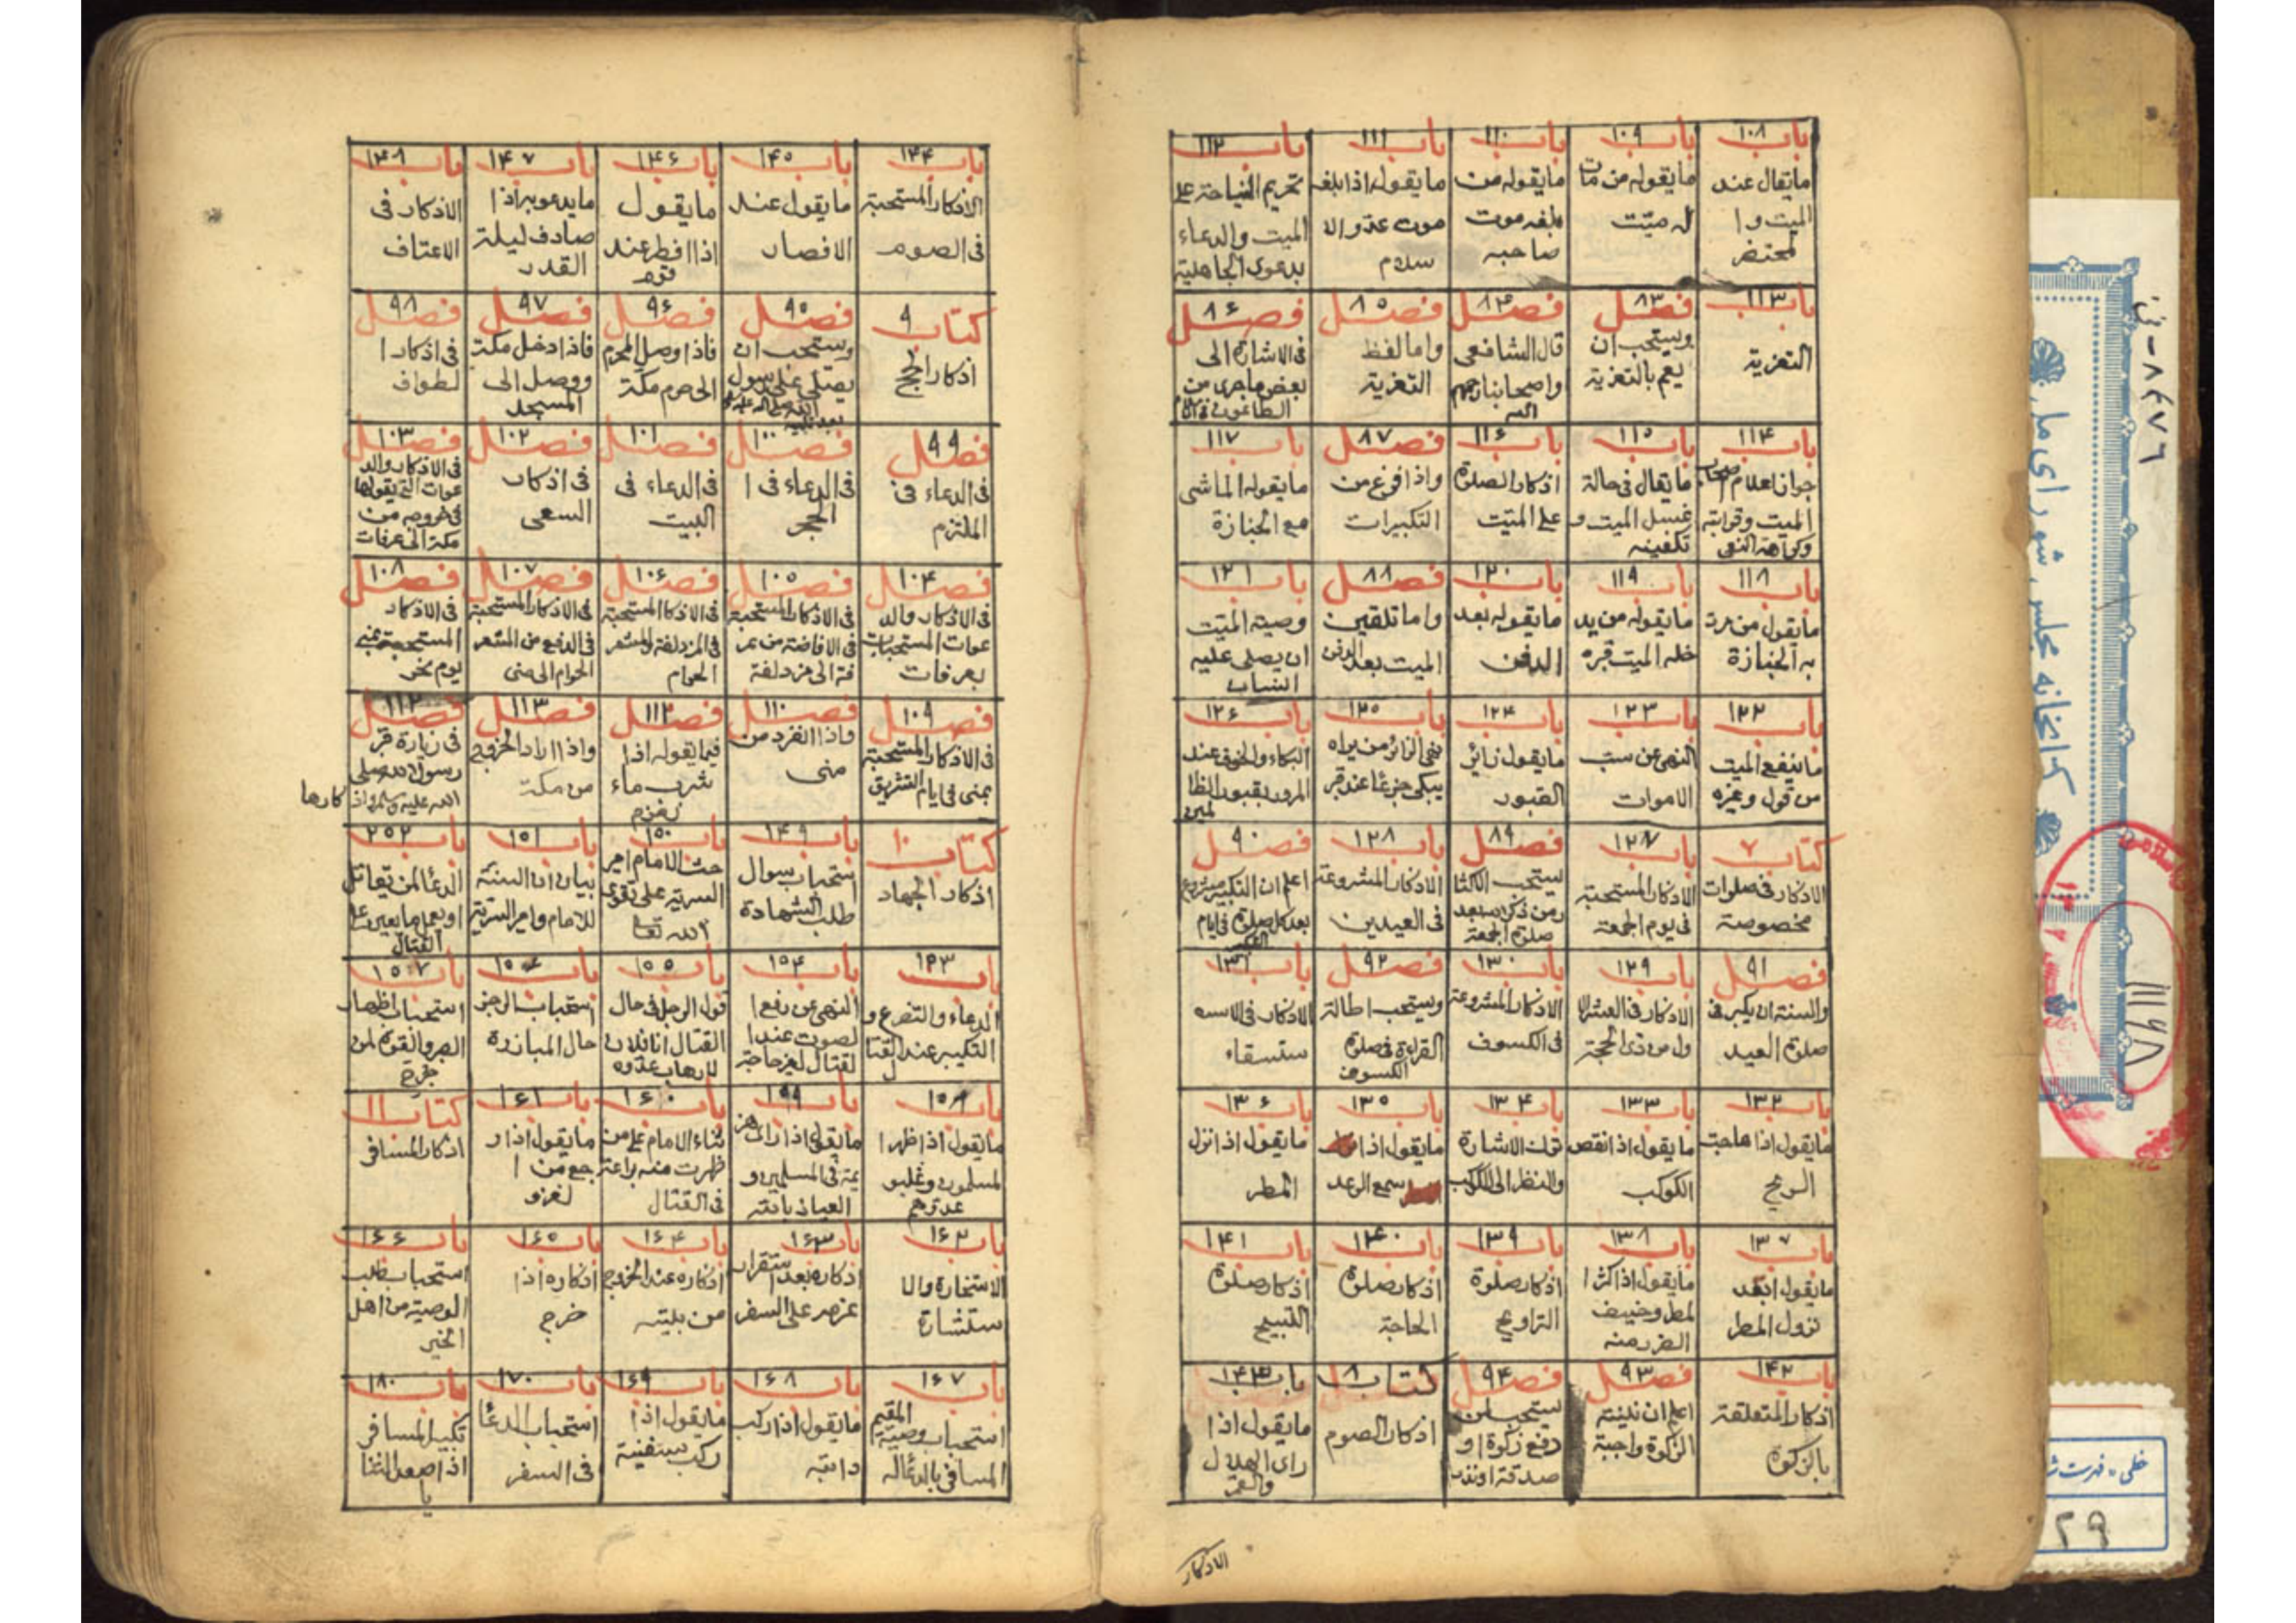 باب ١٠٨
ما يقال عند
الميت وا
لمحتضر
باب ١٠٩
ما يقوله من مات
له ميّت
باب ١١٠
ما يقوله من
بلغه موت
صاحبه
باب ١١١
ما يقوله اذا بلغه
موت عدو الا
سلام
باب ١١٢
تحريم النياحة على
الميت والدعاء
بدعوى الجاهلية
باب ١١٣
التعزية
فصل ٨٣
ويستحب ان
يعم بالتعزية
فصل ٨٤
قال الشافعى
واصحابنا رحمهم
الله
فصل ٨٥
واما لفظ
التعزية
فصل ٨۶
فى الاشارة الى
بعض ما جرى من
الطاعون فى
باب ١١۴
جواز اعلام اصحاب
الميت وقرابته
وكراهة النعى
باب ١١٥
ما يقال فى حالة
غسل الميت و
تكفينه
باب ١١۶
اذكار الصلوة
على الميّت
فصل ٨٧
واذا فرغ من
التكبيرات
باب ١١٧
ما يقوله الماشى
مع الجنازة
باب ١١٨
ما يقول من مرت
به الجنازة
باب ١١٩
ما يقوله من يد
خله الميت قبره
باب ١٢٠
ما يقوله بعد
الدفن
فصل ٨٨
واما تلقين
الميت بعد الدفن
باب ١٢١
وصية الميّت
ان يصلى عليه
باب ١٢٢
ما ينفع الميت
من قول وغيره
باب ١٢٣
النهى عن سب
الاموات
باب ١٢۴
ما يقول زائر
القبور
باب ١٢٥
نهى الزائر من يراه
يبكى جزعًا عند قبر
باب ١٢۶
البكاء والخوف عند
المرور بقبور الظا
لمين
كتاب ٧
الاذكار فى صلوات
مخصوصة
باب ١٢٧
الاذكار المستحبة
فى يوم الجمعة
فصل ٨٩
يستحب الاكثا
ر من ذكر الله بعد
صلوة الجمعة
باب ١٢٨
الاذكار المشروعة
فى العيدين
فصل ٩٠
اعلم ان التكبير مشروع
بعد كل صلوة فى ايام
فصل ٩١
والسنة ان يكبر فى
صلوة العيد
باب ١٢٩
الاذكار فى العشر الا
ول من ذى الحجة
باب ١٣٠
الاذكار المشروعة
فى الكسوف
فصل ٩٢
ويستحب اطالة
القراءة فى صلوة
الكسوف
باب ١٣١
الاذكار فى الاسـ
ستسقاء
باب ١٣٢
ما يقول اذا هاجت
الريح
باب ١٣٣
ما يقول اذا نقض
الكوكب
باب ١٣۴
ترك الاشارة
والنظر الى الكوكب
باب ١٣٥
ما يقول اذا
سمع الرعد
باب ١٣۶
ما يقول اذا نزل
المطر
باب ١٣٧
ما يقول بعد
نزول المطر
باب ١٣٨
ما يقول اذا كثر ا
لمطر وخيف
الضرر منه
باب ١٣٩
اذكار صلوة
التراويح
باب ١۴٠
اذكار صلوة
الحاجة
باب ١۴١
اذكار صلوة
التسبيح
باب ١۴٢
اذكار المتعلقة
بالزكوة
فصل ٩٣
اعلم ان نية
الزكوة واجبة
فصل ٩۴
يستحب لمن
دفع زكوة او
صدقة او نذر
كتاب ٨
اذكار الصوم
باب ١۴٣
ما يقول اذا
راى الهلال
والقمر
الاذكار
باب ١۴۴
الاذكار المستحبة
فى الصوم
باب ١۴٥
ما يقول عند
الافطار
باب ١۴۶
ما يقول
اذا افطر عند
قوم
باب ١۴٧
ما يدعو به اذا
صادف ليلة
القدر
باب ١۴٨
الاذكار فى
الاعتاف
كتاب ٩
اذكار الحج
فصل ٩٥
ويستحب ان
يصلى على رسول
الله صلى الله عليه
بعد تلبية
فصل ٩۶
فاذا وصل المحرم
الى حرم مكة
فصل ٩٧
فاذا دخل مكة
ووصل الى
المسجد
فصل ٩٨
فى اذكار ا
لطواف
فصل ٩٩
فى الدعاء فى
الملتزم
فصل ١٠٠
فى الدعاء فى ا
لحجر
فصل ١٠١
فى الدعاء فى
البيت
فصل ١٠٢
فى اذكار
السعى
فصل ١٠٣
فى الاذكار والد
عوات التى يقولها
فى خروجه من
مكة الى عرفات
فصل ١٠۴
فى الاذكار والد
عوات المستحبات
بعرفات
فصل ١٠٥
فى الاذكار المستحبة
فى الافاضة من عر
فة الى مزدلفة
فصل ١٠۶
فى الاذكار المستحبة
فى المزدلفة والمشعر
الحرام
فصل ١٠٧
فى الاذكار المستحبة
فى الدفع من المشعر
الحرام الى منى
فصل ١٠٨
فى الاذكار
المستحبة بمنى
يوم نحر
فصل ١٠٩
فى الاذكار المستحبة
بمنى فى ايام التشريق
فصل ١١٠
واذا انفرد من
منى
فصل ١١٢
فيما يقوله اذا
شرب ماء
زمزم
فصل ١١٣
واذا اراد الخروج
من مكة
فصل ١١٢
فى زيارة قبر
رسول الله صلى
الله عليه وسلم واذ
كارها
كتاب ١٠
اذكار الجهاد
باب ١۴٩
استحباب سوال
طلب الشهادة
باب ١٥٠
حث الامام امير
السرية على تقوى
الله تعا
باب ١٥١
بيان ان السنة
للامام وامير السرية
باب ٢٥٢
الدعا لمن يقاتل
او يعمل ما يعين على
القتال
باب ١٥٣
الدعاء والتضرع و
التكبير عند القتا
ل
باب ١٥۴
النهى عن رفع ا
لصوت عند ا
لقتال لغير حاجة
باب ١٥٥
قول الرجل فى حال
القتال انا فلان
لارهاب عدوه
باب ١٥۶
استحباب الرجز
حال المبارزة
باب ١٥٧
استحباب اظهار
الصبر والقوة لمن
جرح
باب ١٥٨
ما يقول اذا ظهر ا
لمسلمون وغلبو
عدوهم
باب ١٩٩
ما يقول اذا راى هز
يمة فى المسلمين و
العياذ بالله
باب ١۶٠
ثناء الامام على من
ظهرت منه براعة
فى القتال
باب ١۶١
ما يقول اذا ر
جع من ا
لغزو
كتاب ١١
اذكار المسافر
باب ١۶٢
الاستخارة والا
ستشارة
باب ١۶٣
اذكاره بعد استقرار
عزمه على السفر
باب ١۶۴
اذكاره عند الخروج
من بيته
باب ١۶٥
اذكاره اذا
خرج
باب ١۶۶
استحباب طلب
الوصية من اهل
الخير
باب ١۶٧
استحباب وصية المقيم
المسافر بالدعا له
باب ١۶٨
ما يقول اذا ركب
دابته
باب ١۶٩
ما يقول اذا
ركب سفينة
باب ١٧٠
استحباب الدعا
فى السفر
باب ١٨٠
تكبير المسافر
اذا صعد الثنا
يا
خطى - فهرست
٢٩